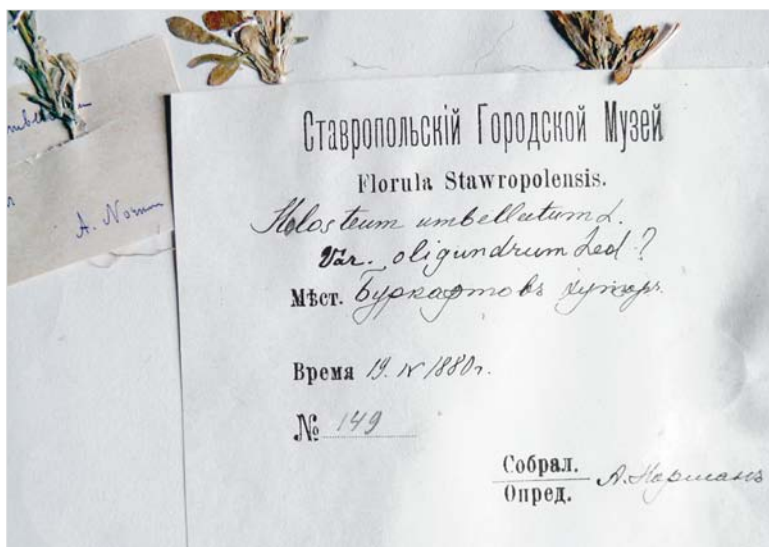 A. Norman
Ставропольскій Городской Музей
Florula Stawropolensis.
Holosteum umbellatum L.
Var. oligandrum Led?
Мѣст. Буркартовъ хуторъ.
Время 19. IV 1880г.
№ 149
Собрал.
Опред. А. Норманъ